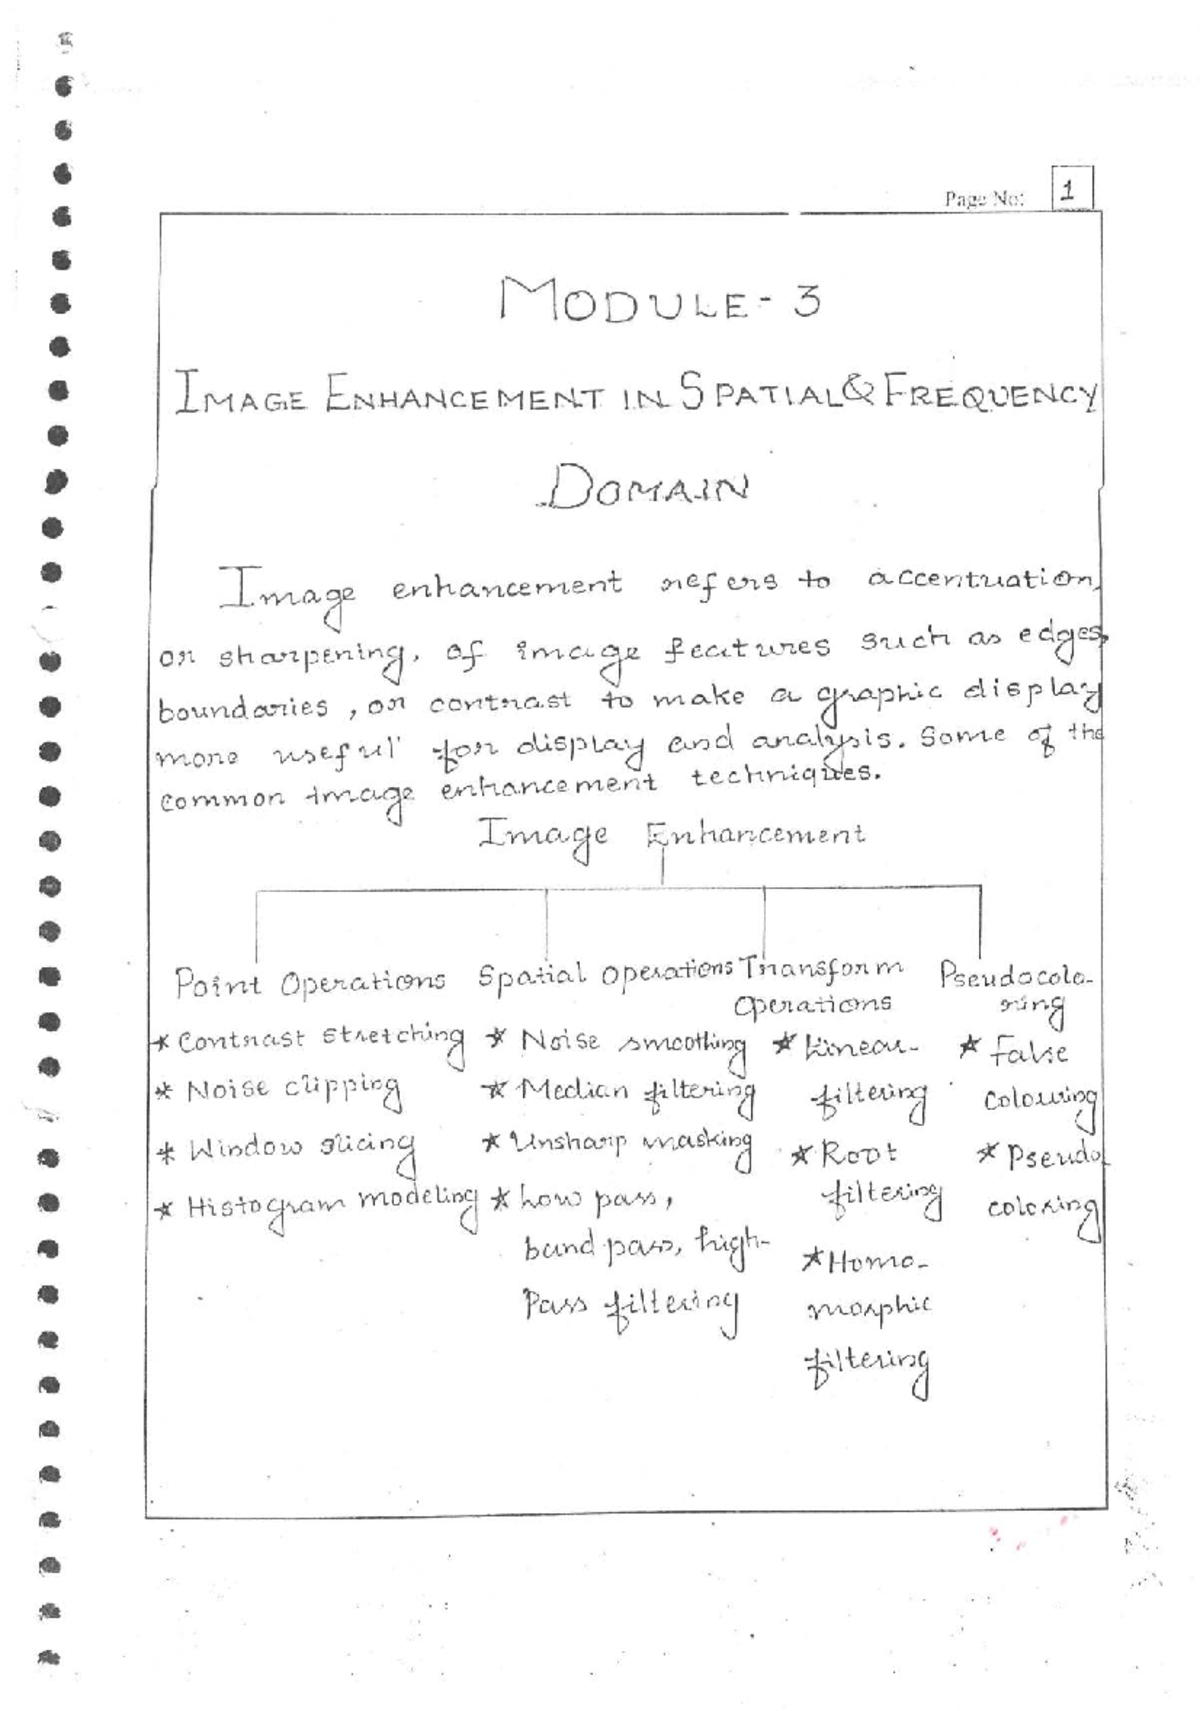 Page No: 1
MODULE - 3
IMAGE ENHANCEMENT IN SPATIAL & FREQUENCY
DOMAIN
Image enhancement refers to accentuation,
or sharpening, of image features such as edges,
boundaries, or contrast to make a graphic display
more useful for display and analysis. Some of the
common image enhancement techniques.
Image Enhancement
Point Operations
* Contrast stretching
* Noise clipping
* Window slicing
* Histogram modeling
Spatial Operations
* Noise smoothing
* Median filtering
* Unsharp masking
* Low pass,
band pass, high-
Pass filtering
Transform
Operations
* Linear-
filtering
* Root
filtering
* Homo-
morphic
filtering
Pseudocolo-
ring
* False
colouring
* Pseudo
coloring